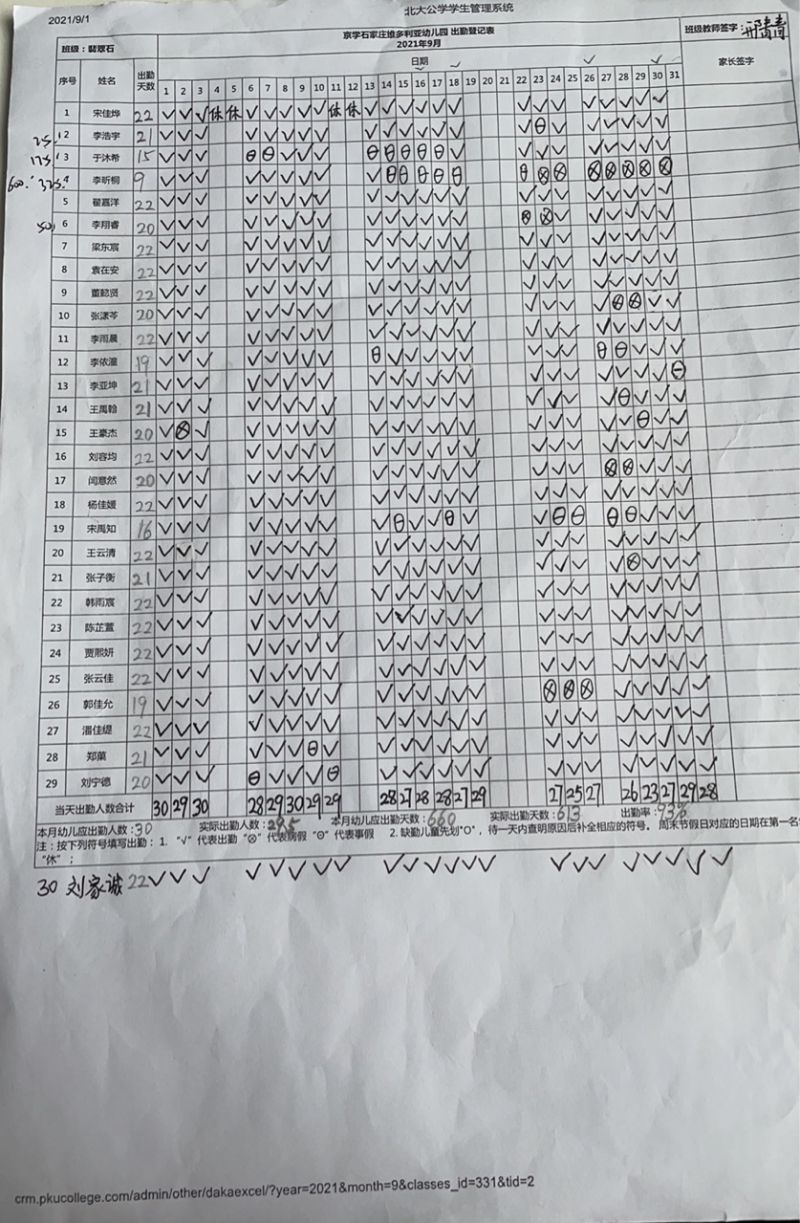 2021/9/1 北大公学学生管理系统
京学石家庄维多利亚幼儿园 出勤登记表
班级：翡翠石 2021年9月 班级教师签字：
日期
序号 姓名 出勤天数 1 2 3 4 5 6 7 8 9 10 11 12 13 14 15 16 17 18 19 20 21 22 23 24 25 26 27 28 29 30 31 家长签字
1 宋佳烨 22 ✓ ✓ ✓ 休 休 ✓ ✓ ✓ ✓ ✓ 休 休 ✓ ✓ ✓ ✓ ✓ ✓ ✓ ✓ ✓ ✓ ✓ ✓ ✓
2 李浩宇 21
3 于沐希 15
4 李昕桐 9
5 翟嘉洋 22
6 李翔睿 20
7 梁东宸 22
8 袁在安 22
9 董懿贤 22
10 张漾芩 20
11 李雨晨 22
12 李依潼 19
13 李亚坤 21
14 王禹翰 21
15 王豪杰 20
16 刘容均 22
17 闫意然 20
18 杨佳媛 22
19 宋禹知 16
20 王云清 22
21 张子衡 21
22 韩雨宸 22
23 陈芷萱 22
24 贾熙妍 22
25 张云佳 22
26 郭佳允 19
27 潘佳缇 22
28 郑菓 21
29 刘宁德 20
当天出勤人数合计 30 29 30 28 29 30 29 29 28 27 28 28 27 29 27 25 27 26 23 27 29 28
本月幼儿应出勤人数：30 实际出勤人数： 本月幼儿应出勤天数：660 实际出勤天数：613 出勤率：93%
注：按下列符号填写出勤： 1. "√" 代表出勤 "⊗" 代表病假 "⊖" 代表事假 2. 缺勤儿童先划"O"，待一天内查明原因后补全相应的符号。 周末节假日对应的日期在第一名
"休"；
30 刘家诚 22 ✓ ✓ ✓ ✓ ✓ ✓ ✓ ✓ ✓ ✓ ✓ ✓ ✓ ✓ ✓ ✓ ✓ ✓ ✓ ✓ ✓ ✓
crm.pkucollege.com/admin/other/dakaexcel/?year=2021&month=9&classes_id=331&tid=2